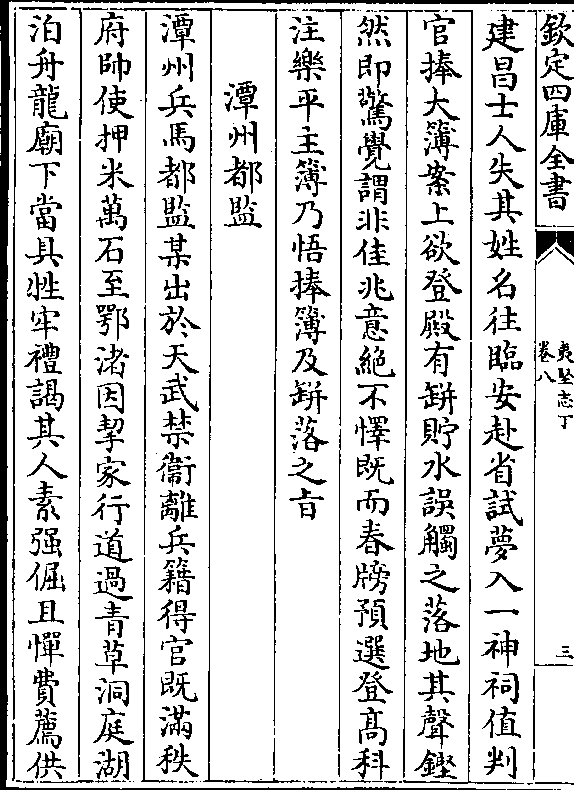 欽定四庫全書
夷堅志丁
卷八
三
建昌士人失其姓名往臨安赴省試夢入一神祠值判
官捧大簿案上欲登殿有缾貯水誤觸之落地其聲鏗
然即驚覺謂非佳兆意絶不懌既而春牓預選登髙科
注樂平主簿乃悟捧簿及缾落之㫖
潭州都監
潭州兵馬都監某出於天武禁衞離兵籍得官既滿秩
府帥使押米萬石至鄂渚因挈家行道過青草洞庭湖
泊舟龍廟下當具牲牢禮謁其人素强倔且憚費薦供